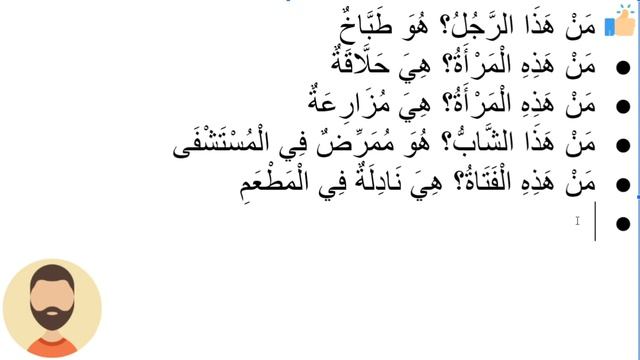 مَنْ هَذَا الرَّجُلُ؟ هُوَ طَبَّاخٌ
مَنْ هَذِهِ الْمَرْأَةُ؟ هِيَ حَلَّاقَةٌ
مَنْ هَذِهِ الْمَرْأَةُ؟ هِيَ مُزَارِعَةٌ
مَنْ هَذَا الشَّابُّ؟ هُوَ مُمَرِّضٌ فِي الْمُسْتَشْفَى
مَنْ هَذِهِ الْفَتَاةُ؟ هِيَ نَادِلَةٌ فِي الْمَطْعَمِ